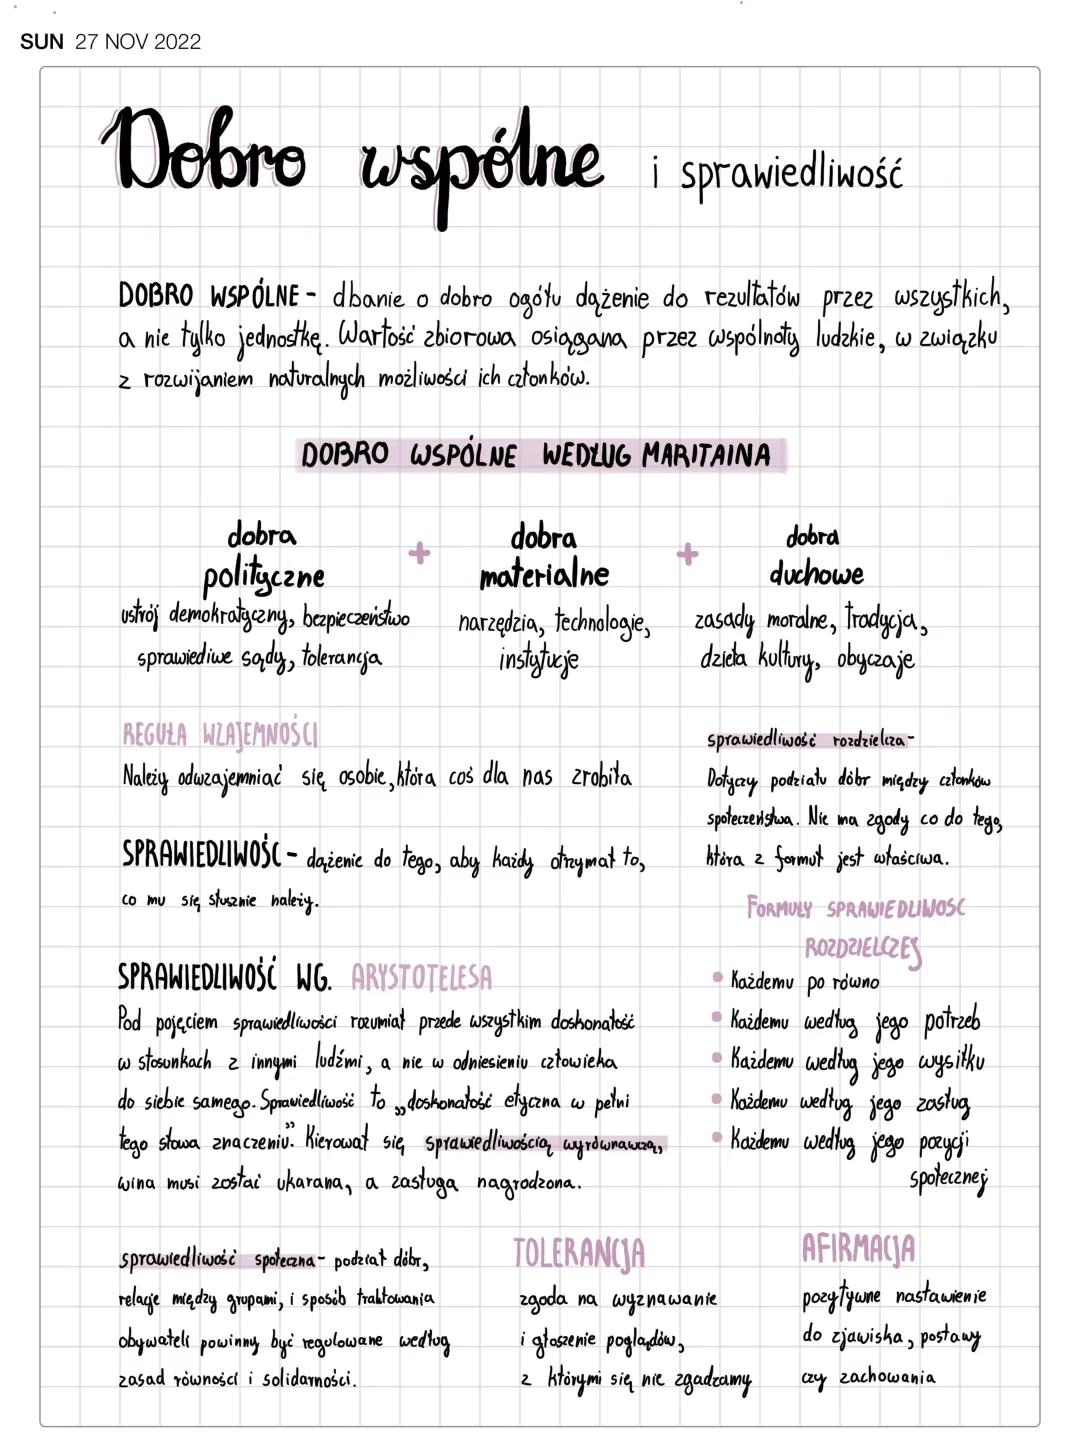 SUN 27 NOV 2022
Dobro wspólne i sprawiedliwość
DOBRO WSPÓLNE - dbanie o dobro ogółu dążenie do rezultatów przez wszystkich,
a nie tylko jednostkę. Wartość zbiorowa osiągana przez wspólnoty ludzkie, w związku
z rozwijaniem naturalnych możliwości ich członków.
DOBRO WSPÓLNE WEDŁUG MARITAINA
dobra
polityczne
ustrój demokratyczny, bezpieczeństwo
sprawiediwe sądy, tolerancja
+
dobra
materialne
narzędzia, technologie,
instytucje
+
dobra
duchowe
zasady moralne, tradycja,
dzieła kultury, obyczaje
REGUŁA WZAJEMNOŚCI
Należy odwzajemniać się osobie, która coś dla nas zrobiła
SPRAWIEDLIWOŚĆ - dążenie do tego, aby każdy otrzymał to,
co mu się słusznie należy.
SPRAWIEDLIWOŚĆ WG. ARYSTOTELESA
Pod pojęciem sprawiedliwości rozumiał przede wszystkim doskonałość
w stosunkach z innymi ludźmi, a nie w odniesieniu człowieka
do siebie samego. Sprawiedliwość to „doskonałość etyczna w pełni
tego słowa znaczeniu”. Kierował się sprawiedliwością wyrównawczą,
wina musi zostać ukarana, a zasługa nagrodzona.
sprawiedliwość rozdzielcza-
Dotyczy podziału dóbr między członków
społeczeństwa. Nie ma zgody co do tego,
która z formuł jest właściwa.
FORMUŁY SPRAWIEDLIWOSC
ROZDZIELCZEJ
• Każdemu po równo
• Każdemu według jego potrzeb
• Każdemu według jego wysiłku
• Każdemu według jego zasług
• Każdemu według jego pozycji
społecznej
sprawiedliwość społeczna - podział dóbr,
relacje między grupami, i sposób traktowania
obywateli powinny być regulowane według
zasad równości i solidarności.
TOLERANCJA
zgoda na wyznawanie
i głoszenie poglądów,
z którymi się nie zgadzamy
AFIRMACJA
pozytywne nastawienie
do zjawiska, postawy
czy zachowania